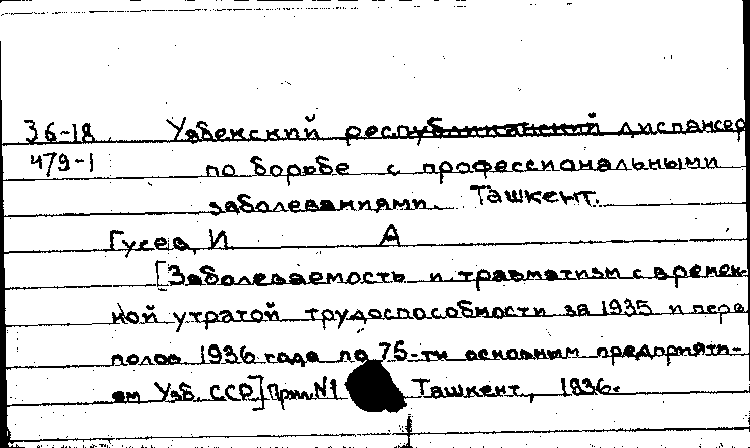 36-18 Узбекский республиканский диспансер
479-1 по борьбе с профессиональными
заболеваниями. Ташкент.
Гусев, И А
[Заболеваемость и травматизм с времен-
ной утратой трудоспособности за 1935 и перв
полов. 1936 года по 75-ти основным предприяти-
ям Узб. ССР] Прил. №1 Ташкент, 1936.